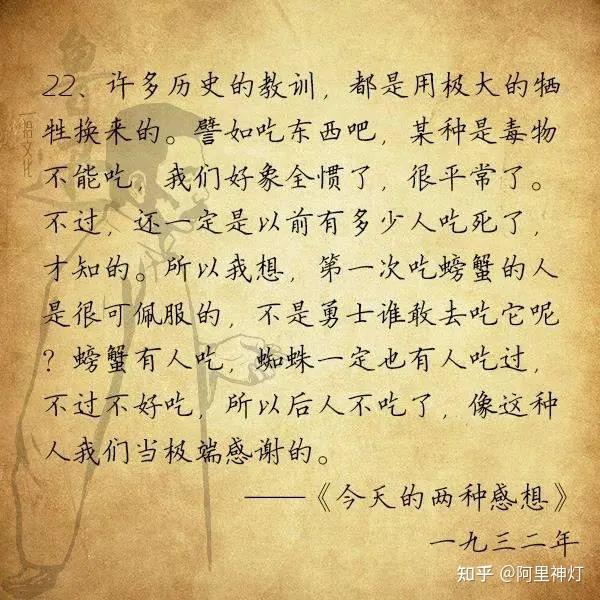 22、许多历史的教训，都是用极大的牺
牲换来的。譬如吃东西吧，某种是毒物
不能吃，我们好象全惯了，很平常了。
不过，还一定是以前有多少人吃死了，
才知的。所以我想，第一次吃螃蟹的人
是很可佩服的，不是勇士谁敢去吃它呢
？螃蟹有人吃，蜘蛛一定也有人吃过，
不过不好吃，所以后人不吃了，像这种
人我们当极端感谢的。
——《今天的两种感想》
一九三二年
知乎 @阿里神灯